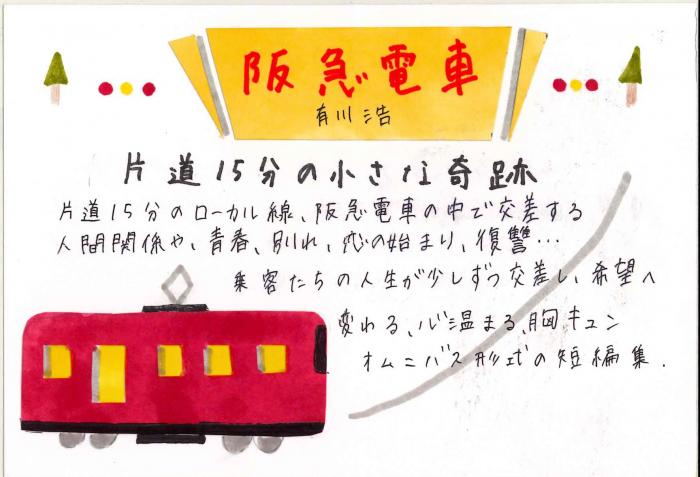 阪急電車
有川浩
片道15分の小さな奇跡
片道15分のローカル線、阪急電車の中で交差する
人間関係や、青春、別れ、恋の始まり、復讐…
乗客たちの人生が少しずつ交差し、希望へ
変わる、心温まる、胸キュン
オムニバス形式の短編集.